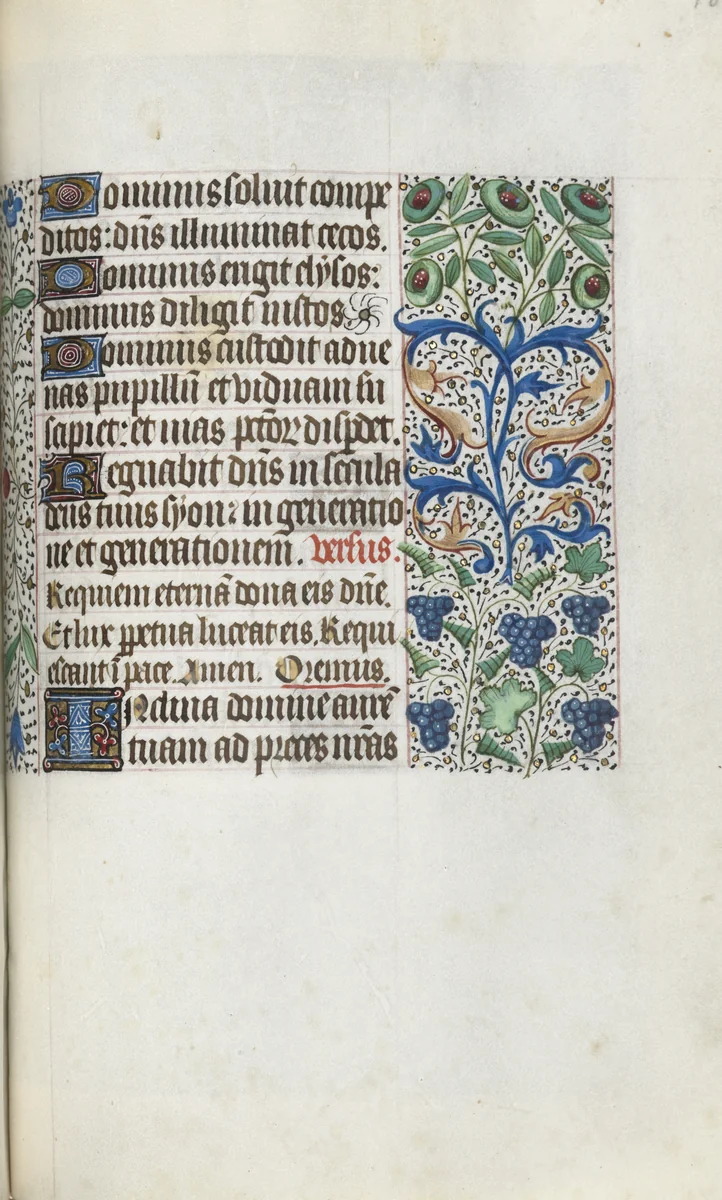 Dominus soluit compe
ditos: dñs illuminat cecos.
Dominus erigit elÿsos:
dominus diligit iustos
Dominus custodit adue
nas pupillũ et viduam su
sapiet: et uias pctõꝝ disꝑdet.
Regnabit dñs in secula
deus tuus sÿon: in generatio
ne et generationem. versus.
Requiem eternã dona eis dñe.
Et lux ꝑpetua luceat eis. Requi
escant ĩ pace. Amen. Oremus.
Inclina domine aurẽ
tuam ad preces nr̃as